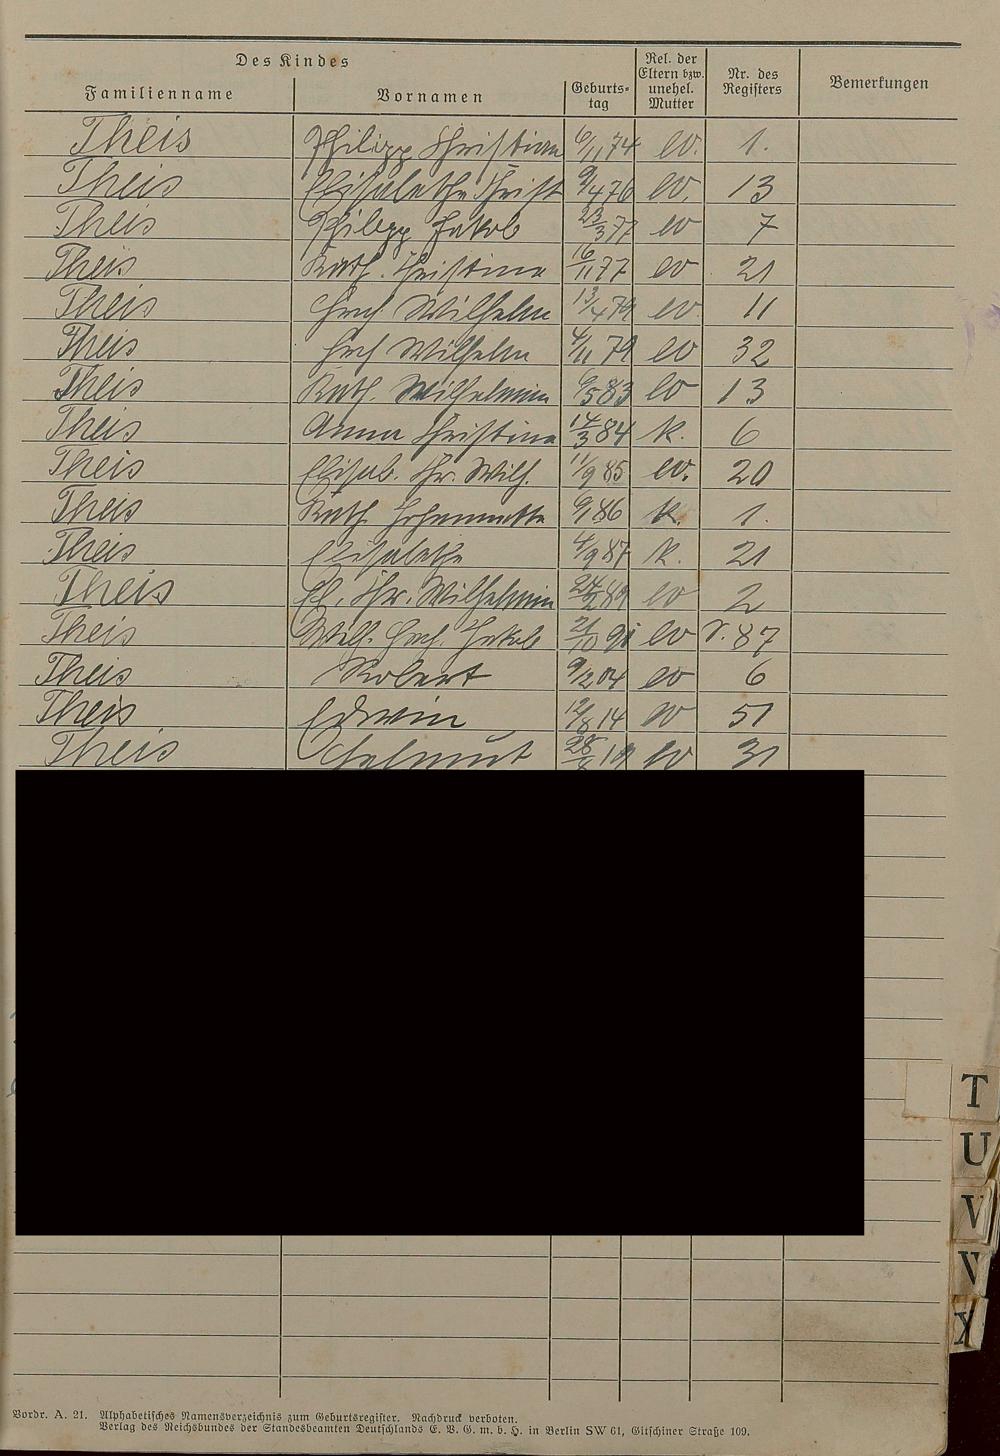 Des Kindes
Familienname Vornamen Geburts-tag Rel. der Eltern bzw. unehel. Mutter Nr. des Registers Bemerkungen
Theis Philipp Christian 6/11 74 ev. 1.
Theis Elisabethe Christ 9/4 76 ev. 13
Theis Philipp Jakob 23/3 77 ev 7
Theis Kath. Christina 16/11 77 ev 21
Theis Hrch Wilhelm 13/4 79 ev. 11
Theis Hrch Wilhelm 4/11 79 ev 32
Theis Kath. Wilhelmin 6/5 83 ev 13
Theis Anna Christina 14/3 84 k. 6
Theis Elisab. Chr. Wilh. 11/9 85 ev. 20
Theis Kath. Johannette 86 k. 1.
Theis Elisabethe 4/9 87 k. 21
Theis El. Chr. Wilhelmin 24/2 89 ev 2
Theis Wilh. Hrch. Jakob 21/10 91 ev V. 87
Theis Robert 9/2 04 ev 6
Theis Edwin 12/8 14 ev 51
Theis Helmut 28 19 ev 31
T
U
V
X
Vordr. A. 21. Alphabetisches Namensverzeichnis zum Geburtsregister. Nachdruck verboten.
Verlag des Reichsbundes der Standesbeamten Deutschlands E. V. G. m. b. H. in Berlin SW 61, Gitschiner Straße 109.